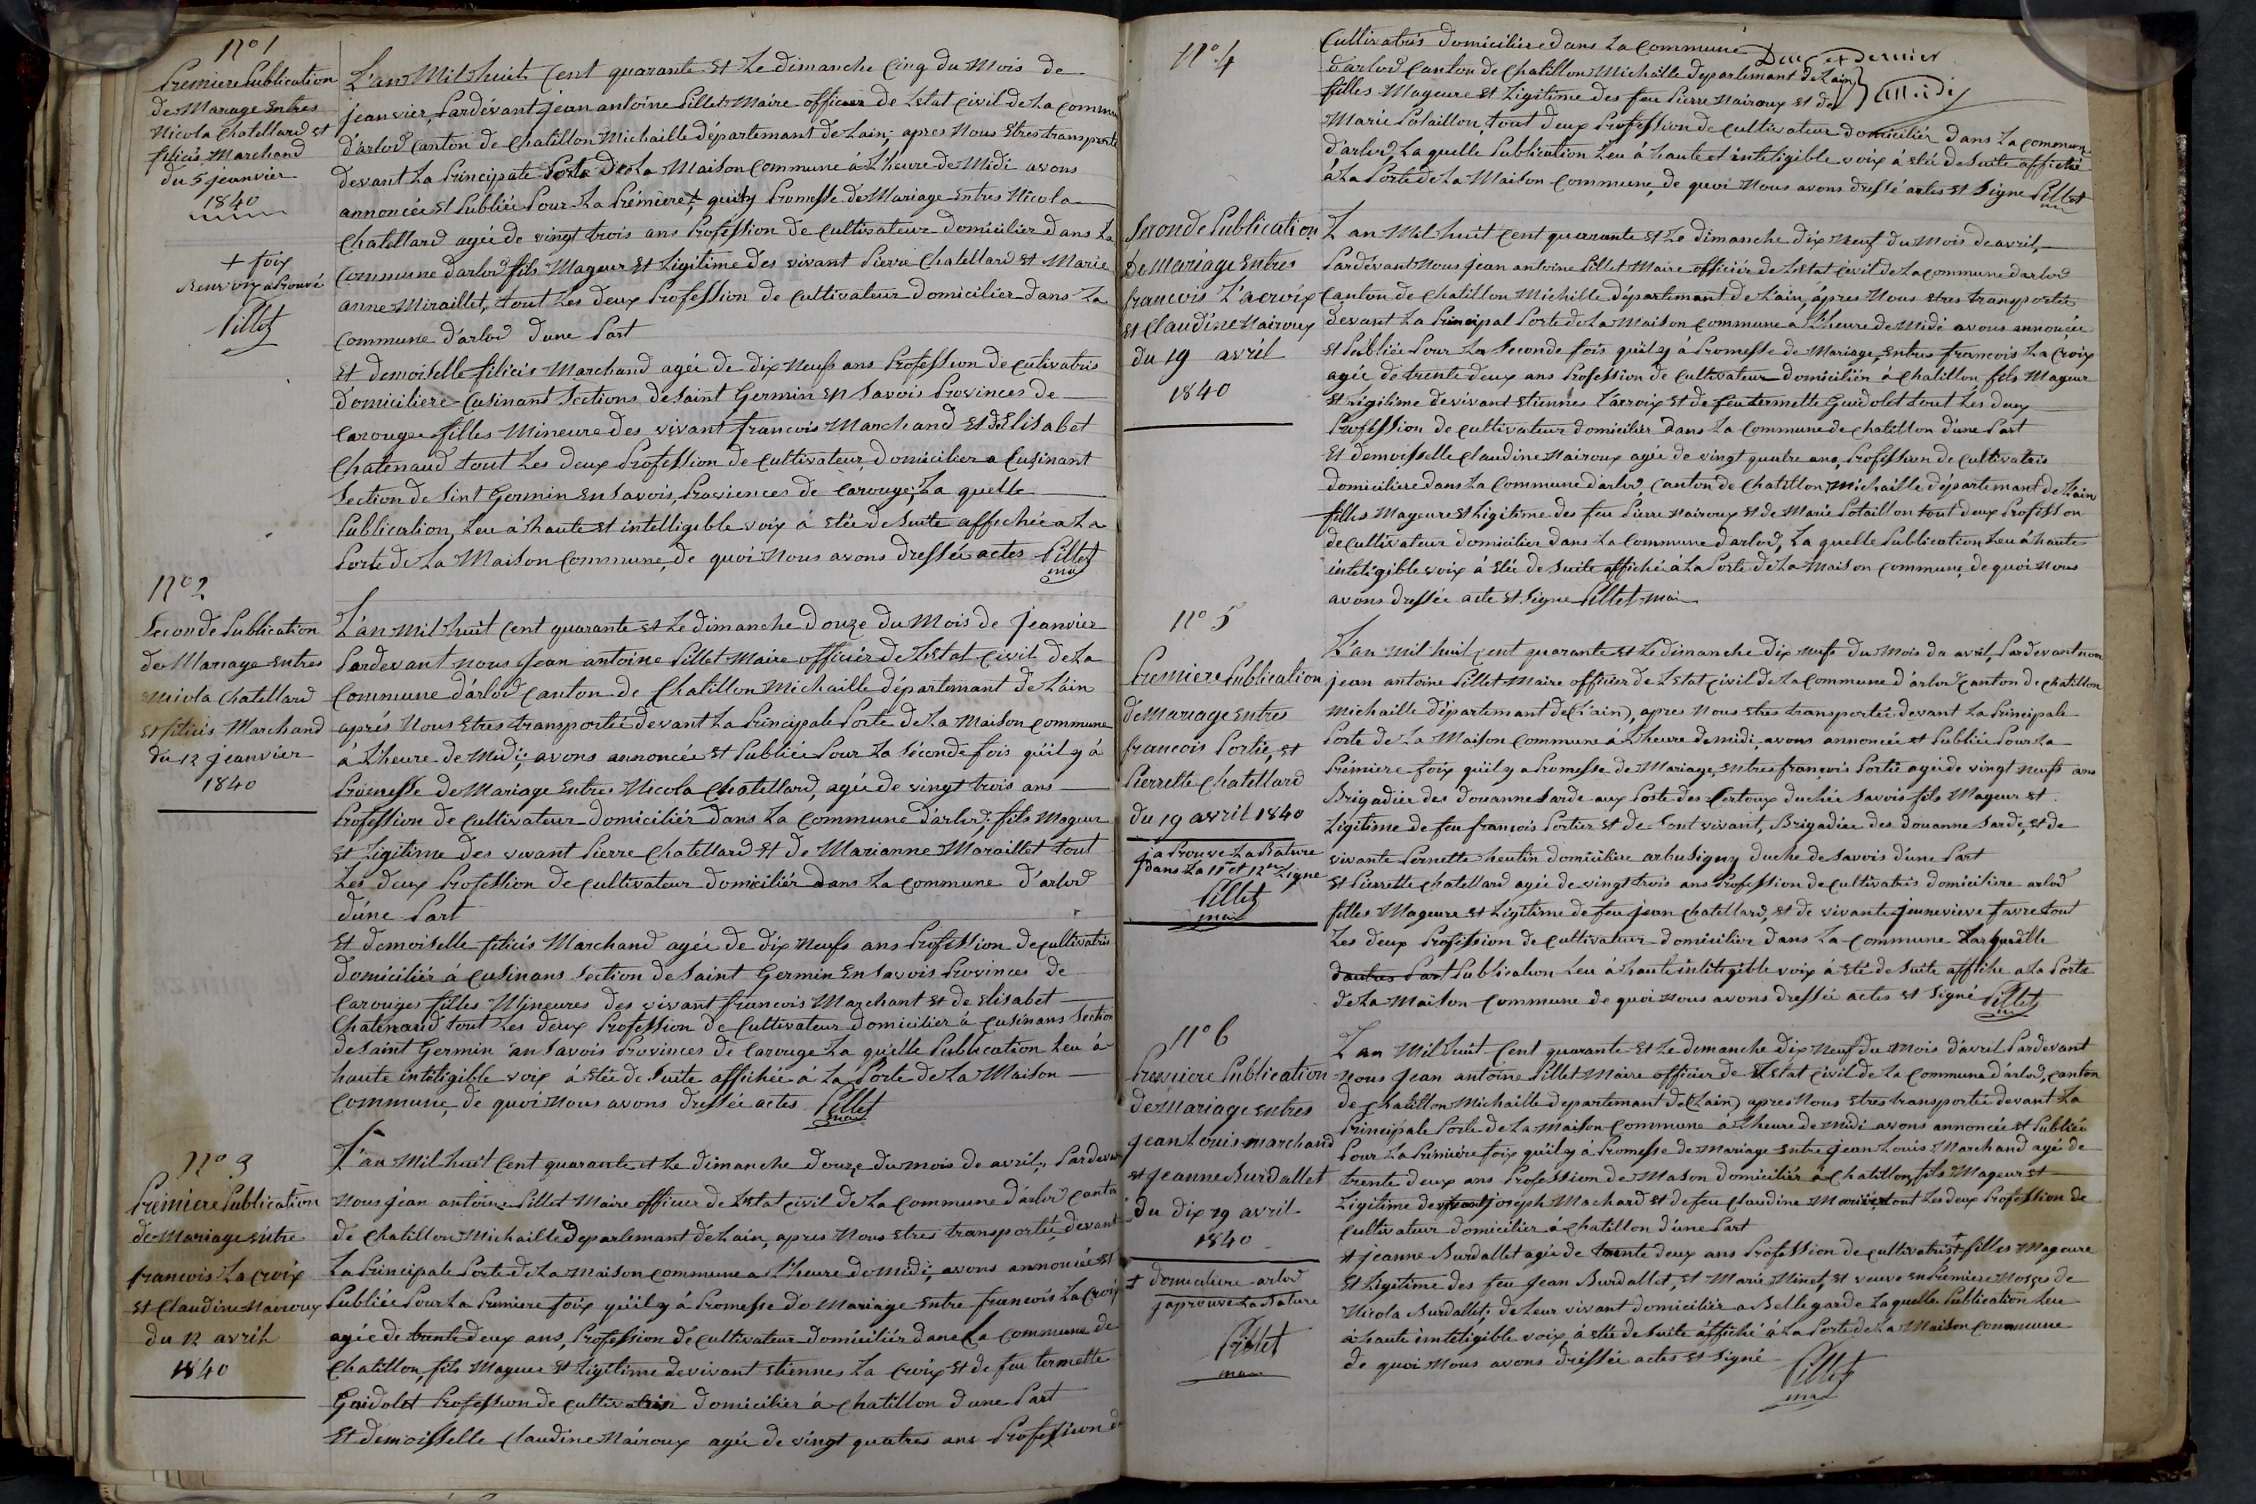 N° 1
Premiere Publication
de Mariage Entres
Nicola Chatellard Et
felicis Marchand
du 5 jeanvier
1840
+ foix
Renvoix aprouvé
Pillet
L'an Mil huit Cent quarante Et Le dimanche Cinq du Mois de
jeanvier, Pardévant jean antoine Pillet Maire officier de Lestat Civil de La Commune
d'arlod Canton de Chatillon Michaille département de Lain; apres Nous Etres transporté
devant La Principale Porte De La Maison Commune à L'heure de Midi avons
annoncée Et Publiée Pour La Premiere + quily Promesse de Mariage Entres Nicola
Chatellard agée de vingt trois ans Profession de Cultivateur domicilier dans La
Commune d'arlod fils Mageur Et Ligitime des vivant Pierre Chatellard Et Marie
anne Miraillet, tout Les deux Profession de Cultivateur domicilier dans La
Commune d'arlod d'une Part
Et demoiselle felicis Marchand agée de dix Neufs ans Profession de Cultivatris
domiciliere Cusinant Sections de Saint Germin En Savois Provinces de
Carouge filles Mineure des vivant francois Marchand Et d'Elisabet
Chatenaud tout Les deux Profession de Cultivateur, domicilier a Cusinant
Section de Sint Germin En Savois, Proviences de Carouge, La quelle
Publication Leu à haute Et intelligible voix à Etée de Suite affichée a La
Porte de La Maison Commune, de quoi Nous avons dressée actes Pillet
mai
N° 2
Seconde Publication
de Mariage Entres
Nicola Chatellard
Et felicis Marchand
du 12 jeanvier
1840
L'an Mil huit Cent quarante Et Le dimanche Douze du Mois de jeanvier
Pardevant Nous Jean antoine Pillet Maire officier de L'Estat Civil de La
Commune d'arlod Canton de Chatillon Michaille département de Lain
aprés Nous Etres transportée devant La Principale Porte de La Maison Commune
à L'heure de Midi; avons annoncée Et Publiée Pour La Seconde fois qu'il y à
Promesse de Mariage Entres Nicola Chatellard, agée de vingt trois ans
Profession de Cultivateur domicilièr dans La Commune d'arlod; fils Mageur
Et Ligitime des vivant Pierre Chatellard Et de Marianne Maraillet tout
Les deux Profession de Cultivateur domicilièr dans La Commune d'arlod
d'une Part
Et demoiselle felicis Marchand agée de dix Neufs ans Profession de Cultivatris
domicilièr à Cusinans Section de Saint Germin En Savois Provinces de
Carouges filles Mineures des vivant francois Marchant Et de Elisabet
Chatenaud tout Les deux Profession de Cultivateur domicilier à Cusinans Section
de Saint Germin an Savois Provinces de Carouge La quelle Publication Leu à
haute inteligible voix à Etée de Suite affichée à La Porte de La Maison
Commune, de quoi Nous avons dressée actes Pillet
mai
N° 3
Premiere Publication
de Mariage Entre
francois La Croix
Et Claudine Nairoux
du 12 avril
1840
L'an Mil huit Cent quarante et Le dimanche douze du mois de avril, Pardevant
Nous jean antoine Pillet Maire officier de L'Estat Civil de La Commune d'arlod Canton
de Chatillon Michaille Departemant de Lain, apres Nous Etres transportée, devant
La Principale Porte de La Maison Commune a L'heure de Midi, avons annoncée Et
Publiée Pour La Premiere foix qu'il y à Promesse de Mariage Entre francois La Croix
agée de trente deux ans, Profession de Cultivateur domicilièr dans La Commune de
Chatillon, fils Mageur Et Ligitime de vivant Etiennes La Croix Et de feu termette
Guidolet Profession de Cultivatris domicilier à Chatillon d'une Part
Et demoisselle Claudine Nairoux agée de vingt quatres ans Profession de
N° 4
Cultivatris domiciliere dans La Commune
Deux et Dernier
d'arlod Canton de Chatillon Michaille Departemant de Lain
filles Mageure Et Ligitime des feu Pierre Nairoux Et de
Marie Potaillon, tout deux Profession de Cultivateur domicilièr dans La Commune
d'arlod, La quelle Publication Leu à haute et inteligible voix à Etée de Suite affichée
à La Porte de La Maison Commune, de quoi Nous avons dressé actes Et Signe Pillet
Seconde Publication
De Mariage Entres
francois L'acroix
Et Claudine Nairoux
du 19 avril
1840
L'an Mil huit Cent quarante Et Le dimanche dix Neuf du Mois de avril,
Pardevant Nous jean antoine Pillet Maire officiér de Lestat Civil de La Commune d'arlod
Canton de Chatillon Michille département de Lain, àpres Nous Etres transportée
devant La Principal Porte de La Maison Commune a L'heure de Midi avons annoncée
Et Publiée Pour La Seconde fois qu'il y à Promesse de Mariage Entres francois La Croix
agée de trente deux ans Profession de Cultivateur domicilièr à Chatillon fils Mageur
Et Légitime de vivant Etiennes Lacroix Et de feu termette Guidolet tout Les deux
Profession de Cultivateur domicilier dans La Commune de Chatillon d'une Part
Et demoisselle Claudine Nairoux agée de vingt quatre ans, Profession de Cultivatris
domiciliere dans La Commune d'arlod, Canton de Chatillon Michaille département de Lain
filles Mageure Et Ligitime des feu Pierre Nairoux Et de Marie Potaillon tout deux Profession
de Cultivateur domicilier dans La Commune d'arlod, La quelle Publication Leu à haute
inteligible voix à Etée de Suite affiché à La Porte de La Maison Commune, de quoi Nous
avons dressée acte Et Signe Pillet mai
N° 5
Premiere Publication
de Mariage Entres
francois Portié, Et
Pierrette Chatellard
du 19 avril 1840
japrouve La Rature
dans La 11 et 12me Ligne
Pillet
mai
L'an Mil huit Cent quarante Et Le dimanche dix neufs du Mois de avril, Pardevant nous
jean antoine Pillet Maire officier de L'Estat Civil de La Commune d'arlod Canton de Chatillon
Michaille département de (Lain), apres Nous Etres transportée devant La Principale
Porte de La Maison Commune à L'heure de midi, avons annoncée Et Publiée Pour La
Prémiere foix qu'il y a Promesse de Mariage, Entres francois Portié agée de vingt neufs ans
Brigadiée des douanne Sarde aux Poste des Certoux duchée Savois fils Mageur Et
Ligitime de feu francois Portier Et de Sont vivant, Brigadiee des douanne Sarde, Et de
vivante Pernette heutin domicilière arbusigny duche de Savois d'une Part
Et Pierrette Chatellard agée de vingt trois ans Profession de Cultivatris domiciliere arlod
filles Mageure Et Ligitime de feu Jean Chatellard, Et de vivante jeunevieve favre tout
Les deux Profession de Cultivateur domicilier dans La Commune Larquelle
dautres Part Publication Leu à haute inteligible voix à Eté de Suite affiche a La Porte
de La Maison Commune de quoi Nous avons dressée actes Et Signé Pillet
N° 6
Premiere Publication
de Mariage Entres
jean Louis Marchand
Et jeanne Burdallet
du dix 19 avril
1840
+ domicaliere arlod
japrouve La Rature
Pillet
mai
L'an Mil huit Cent quarante Et Le demanche dix Neuf du Mois d'avril Pardevant
Nous Jean antoine Pillet Maire officier de L'Estat Civil de La Commune d'arlod, Canton
de Chatillon Michaille departement de (Lain) apres Nous Etres transportée devant La
Principale Porte de La Maison Commune à L'heure de midi avons annoncée Et Publiée
Pour La Prémiere foix qu'il y à Promesse de Mariage Entre jean Louis Marchand agée de
trente deux ans Profession de Mason domicilièr à Chatillon, fils Mageur Et
Ligitime de joseph Machard Et de feu Claudine tout Les deux Profession de
Cultivateur domicilier à Chatillon d'une Part
Et jeanne Burdallet agée de trente deux ans Profession de Cultivatris + filles Mageure
Et Ligitime des feu Jean Burdallet, Et Marie Minet, Et veuve En Premiere Nosses de
Nicola Burdallet, de Leur vivant domicilièr a Bellegarde La quelle Publication Leu
à haute inteligible voix, à Etée de Suite affiché à La Porte de La Maison Commune
de quoi Nous avons dréssée actes Et Signé Pillet
mai